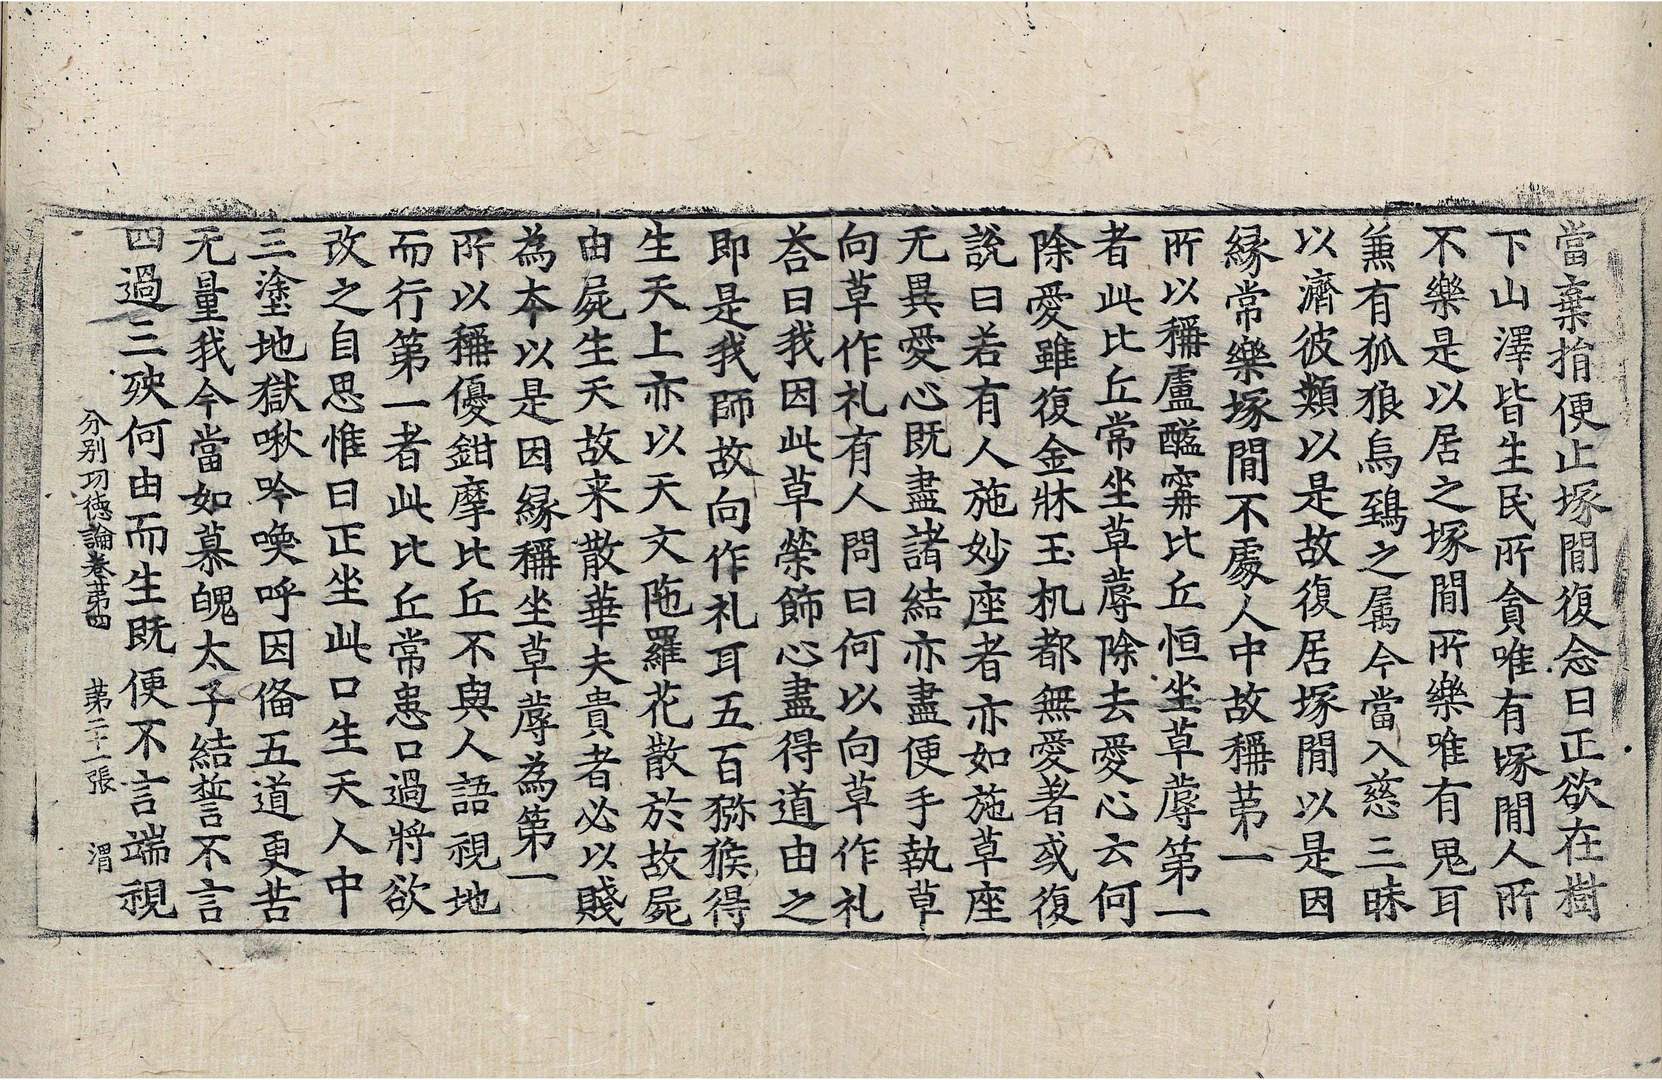 當棄捐便止塚間復念曰正欲在樹
下山澤皆生民所貪唯有塚間人所
不樂是以居之塚間所樂唯有鬼耳
兼有狐狼烏鵄之属今當入慈三昧
以濟彼類以是故復居塚間以是因
縁常樂塚間不處人中故稱苐一
所以稱盧醯寗比丘恒坐草蓐第一
者此比丘常坐草蓐除去愛心云何
除愛雖復金牀玉机都無愛著或復
說曰若有人施妙座者亦如施草座
无異愛心既盡諸結亦盡便手執草
向草作礼有人問曰何以向草作礼
荅曰我因此草榮飾心盡得道由之
即是我師故向作礼耳五百猕猴得
生天上亦以天文陁羅花散於故屍
由屍生天故来散華夫貴者必以賤
為本以是因縁稱坐草蓐為第一
所以稱優鉗摩比丘不與人語視地
而行第一者此比丘常患口過將欲
改之自思惟曰正坐此口生天人中
三塗地獄啾吟喚呼因俻五道更苦
无量我今當如慕魄太子結誓不言
四過三殃何由而生既便不言端視
分别功徳論卷苐四 苐二十一張 渭